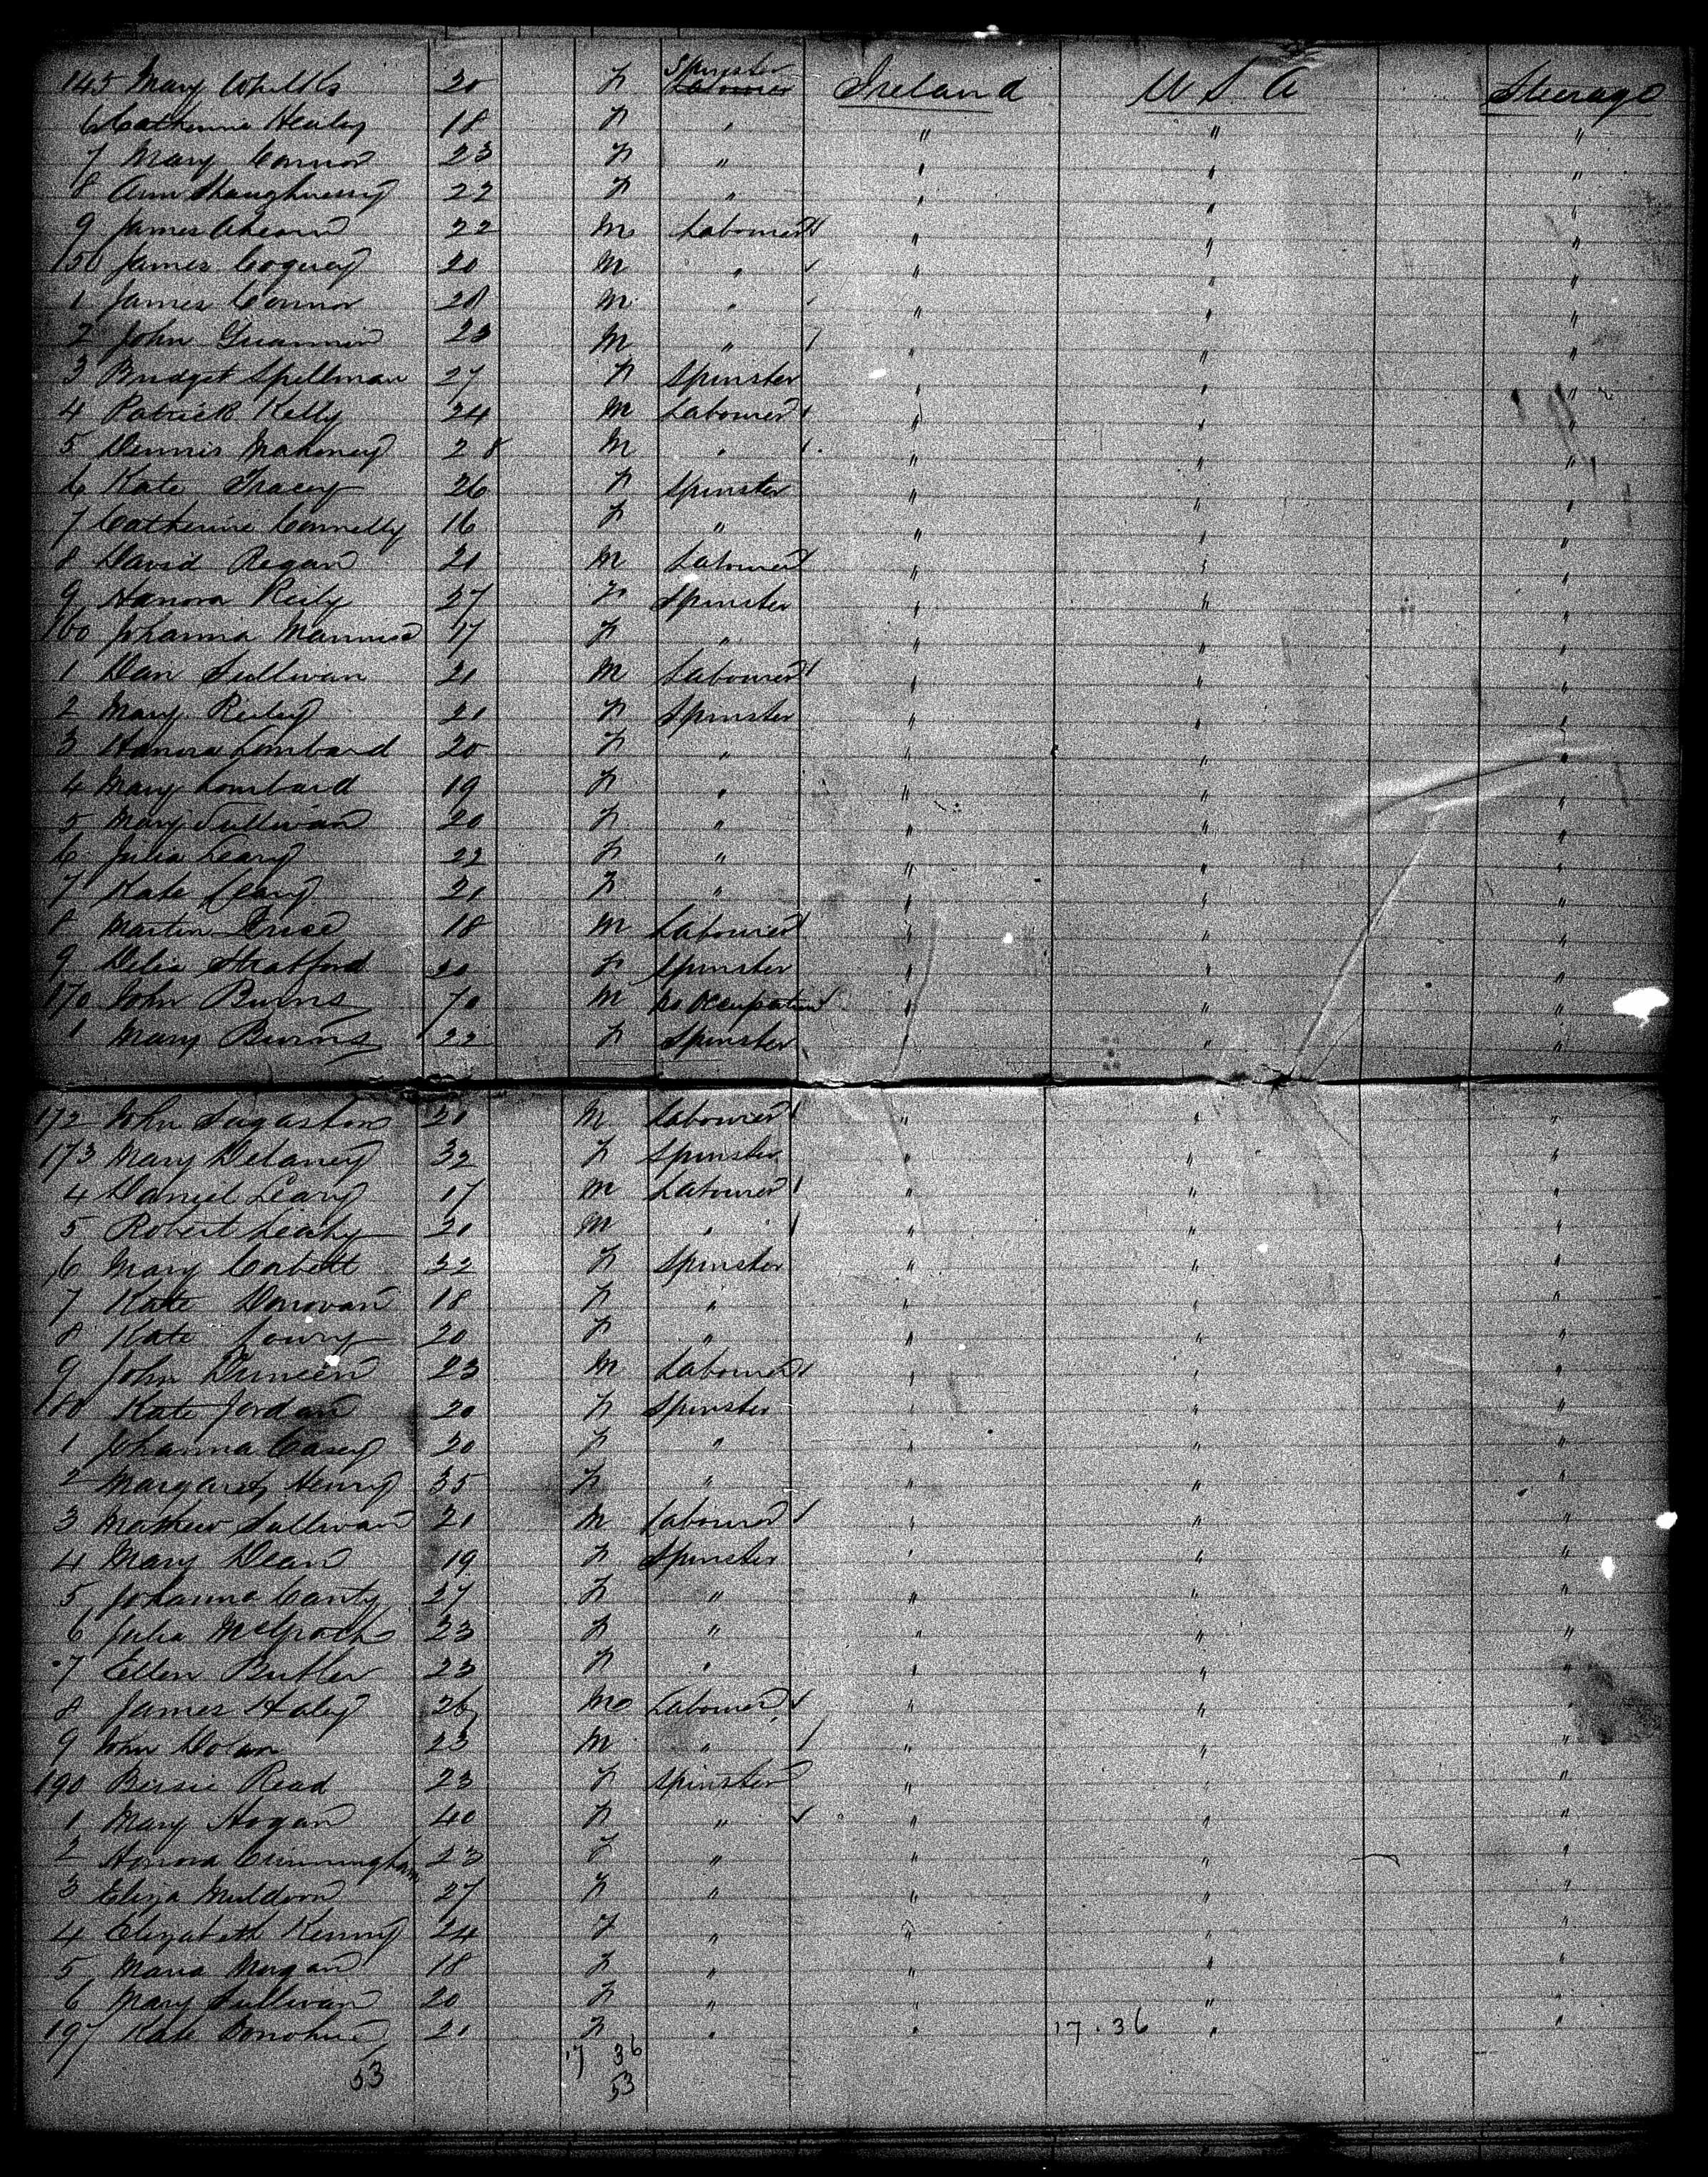 145 Mary 20 F Spinster Ireland U S A Steerage
6 Catherine Healey 18 F " " " "
7 Mary Connor 23 F " " " "
8 Ann Shaughnessy 22 F " " " "
9 James Ahearn 22 M Labourer " " "
150 James 20 M " " " "
1 James Connor 20 M " " " "
2 John 23 M " " " "
3 Bridget Spellman 27 F Spinster " " "
4 Patrick Kelly 24 M Labourer " " "
5 Dennis Mahoney 28 M " " " "
6 Kate Tracey 26 F Spinster " " "
7 Catherine Connelly 16 F " " " "
8 David Regan 21 M Labourer " " "
9 Hanora Reily 27 F Spinster " " "
160 Johanna 17 F " " " "
1 Dan Sullivan 21 M Labourer " " "
2 Mary Reiley 21 F Spinster " " "
3 Hanora Lombard 20 F " " " "
4 Mary Lombard 19 F " " " "
5 Mary Sullivan 20 F " " " "
6 Julia Leary 22 F " " " "
7 Kate Leary 21 F " " " "
8 Martin 18 M Labourer " " "
9 Delia Stratford 20 F Spinster " " "
170 John Burns 70 M No Occupation " " "
1 Mary Burns 22 F Spinster " " "
172 John M Labourer " " "
173 Mary Delaney 32 F Spinster " " "
4 Daniel Leary 17 M Labourer " " "
5 Robert Leahy 21 M " " " "
6 Mary Corbett 32 F Spinster " " "
7 Kate Donovan 18 F " " " "
8 Kate Lowry 20 F " " " "
9 John 23 M Labourer " " "
180 Kate Jordan 20 F Spinster " " "
1 Johanna Casey 20 F " " " "
2 Margaret Henry 35 F " " " "
3 Mathew Sullivan 21 M Labourer " " "
4 Mary Dean 19 F Spinster " " "
5 Johanna Canty 27 F " " " "
6 Julia McGrath 23 F " " " "
7 Ellen Butler 23 F " " " "
8 James Haley 26 M Labourer " " "
9 John Dolan 23 M " " " "
190 Bessie Read 23 F Spinster " " "
1 Mary Hogan 40 F " " " "
2 Honora Cunningham 23 F " " " "
3 Eliza Muldoon 27 F " " " "
4 Elizabeth Kenny 24 F " " " "
5 Maria Morgan 18 F " " " "
6 Mary Sullivan 20 F " " " "
197 Kate Donohue 21 F " " 17.36 " "
17 36
53 53